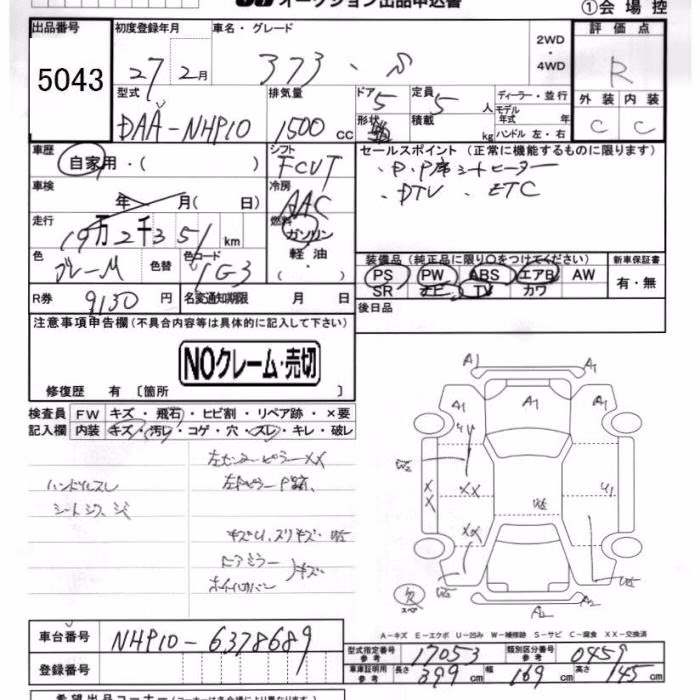 オークション出品申込書 ①会場控
出品番号 初度登録年月 車名・グレード 2WD ・ 4WD 評価点
5043 27 2月 373 ・ S R
型式 排気量 ドア 5 定員 5 人 ディーラー・並行 外装 内装
DAA-NHP10 1500 cc 形状 積載 kg モデル年式 年 ハンドル 左・右 C C
車歴 自家用・( ) シフト FCVT セールスポイント (正常に機能するものに限ります)
・D.P席シートヒーター
・DTV ・ETC
車検 年 月( 日) 冷房 AAC
走行 19万2千351 km 燃料 ガソリン 軽油 ・( )
色 グレーM 色替 色コード 1G3
装備品 (純正品に限り○をつけてください) 新車保証書
PS PW ABS エアB AW 有・無
SR ナビ TV カワ
R券 9130 円 名変通知期限 月 日 後日品
注意事項申告欄(不具合内容等は具体的に記入して下さい)
NOクレーム・売切
修復歴 有 〔箇所 〕
検査員 FW キズ・飛石・ヒビ割・リペア跡・×要
記入欄 内装 キズ・汚レ・コゲ・穴・スレ・キレ・破レ
左センターピラーXX
ハンドルスレ
シート シワ
キズU、スリキズ
ドアミラー
ホイルカバー キズ
A1 A1
A1 A1 A1
U1
W2 XX XX U1
W5
XX
W5 W5
A2 A2
欠
A-キズ E-エクボ U-凹み W-補修跡 S-サビ C-腐食 XX-交換済
車台番号 NHP10-6378689 型式指定番号 参考 17053 類別区分番号 参考 0459
登録番号 車庫証明用 参考 長さ 399 cm 幅 169 cm 高さ 145 cm
希望出品コーナー